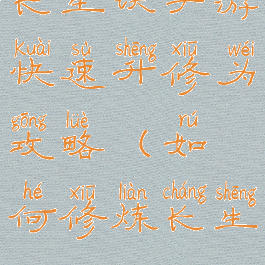 长生诀手游
kuài sù shēng xiū wéi
快速升修为
gōng lüè rú
攻略（如
hé xiū liàn cháng shēng
何修炼长生